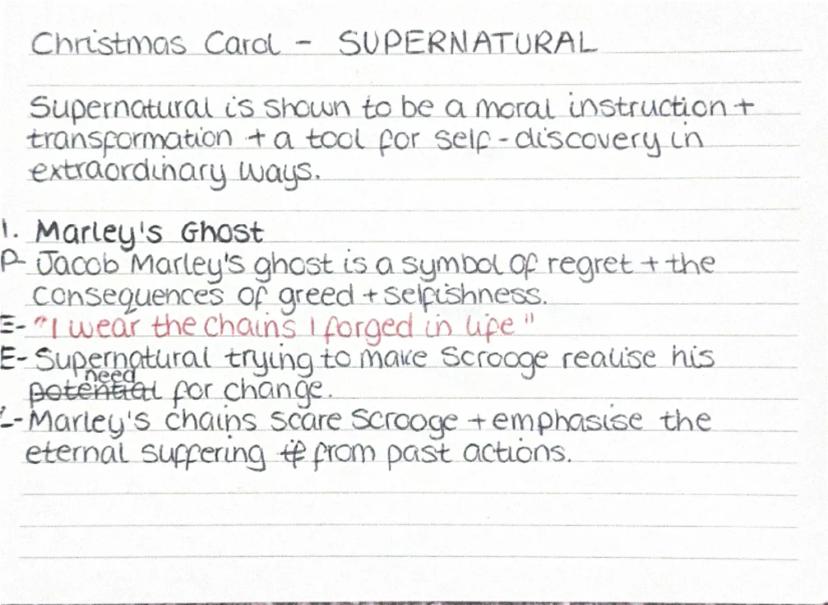 Christmas Carol - SUPERNATURAL
Supernatural is shown to be a moral instruction +
transformation + a tool for self-discovery in
extraordinary ways.
1. Marley's Ghost
P- Jacob Marley's ghost is a symbol of regret + the
consequences of greed + selfishness.
E- "I wear the chains I forged in life"
E- Supernatural trying to make Scrooge realise his
need
potential for change.
L- Marley's chains scare Scrooge + emphasise the
eternal suffering from past actions.